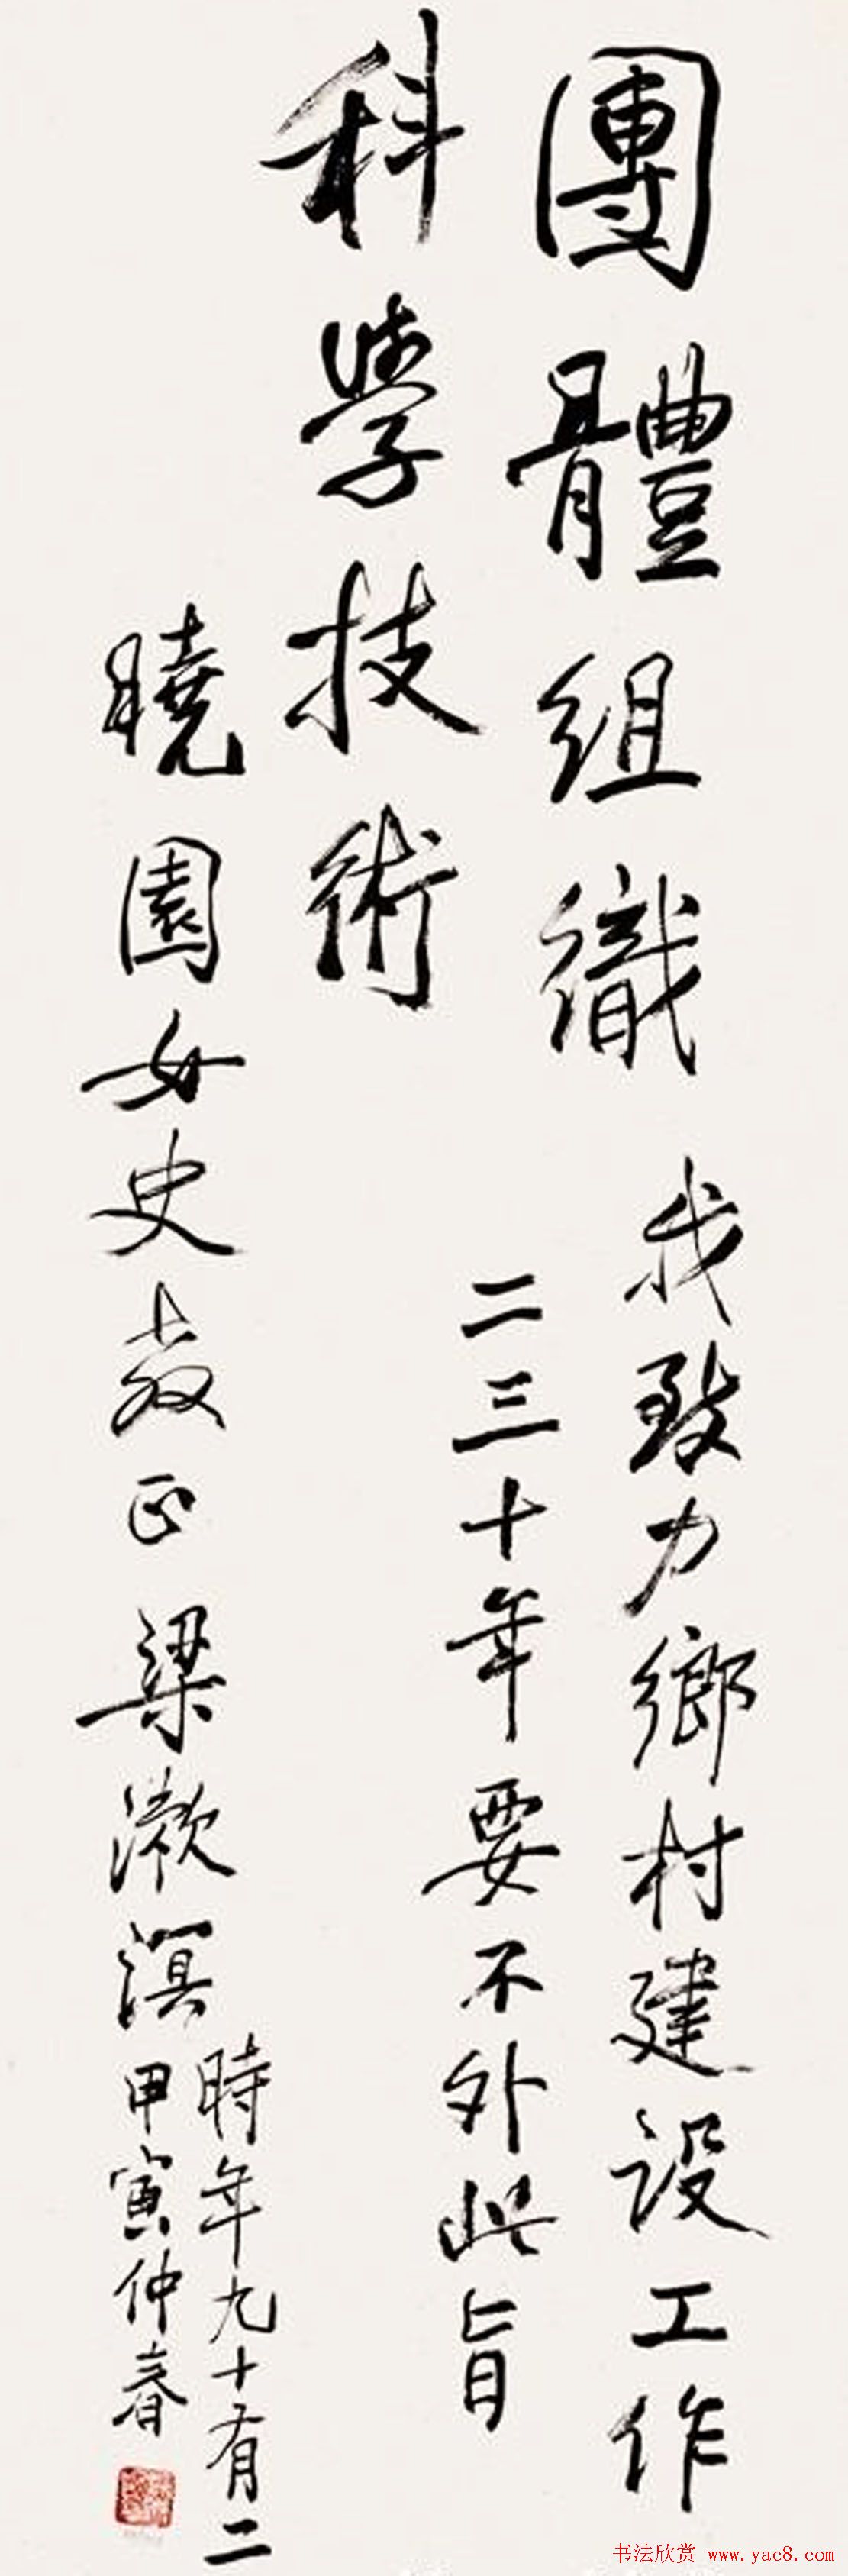 團體組織
科學技術
我致力鄉村建設工作
二三十年要不外此旨
曉園女史教正 梁漱溟
時年九十有二
甲寅仲春
书法欣赏 www.yac8.com